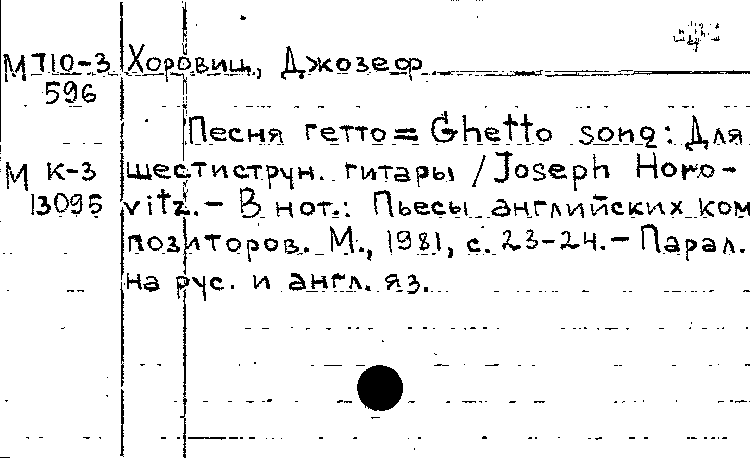 М 710-3 Хоровиц, Джозеф
596
Песня гетто = Ghetto song: Для
М К-3 шестиструн. гитары / Joseph Horo-
13095 vitz. - В нот.: Пьесы английских ком
позиторов. М., 1981, с. 23-24. - Парал.
на рус. и англ. яз.